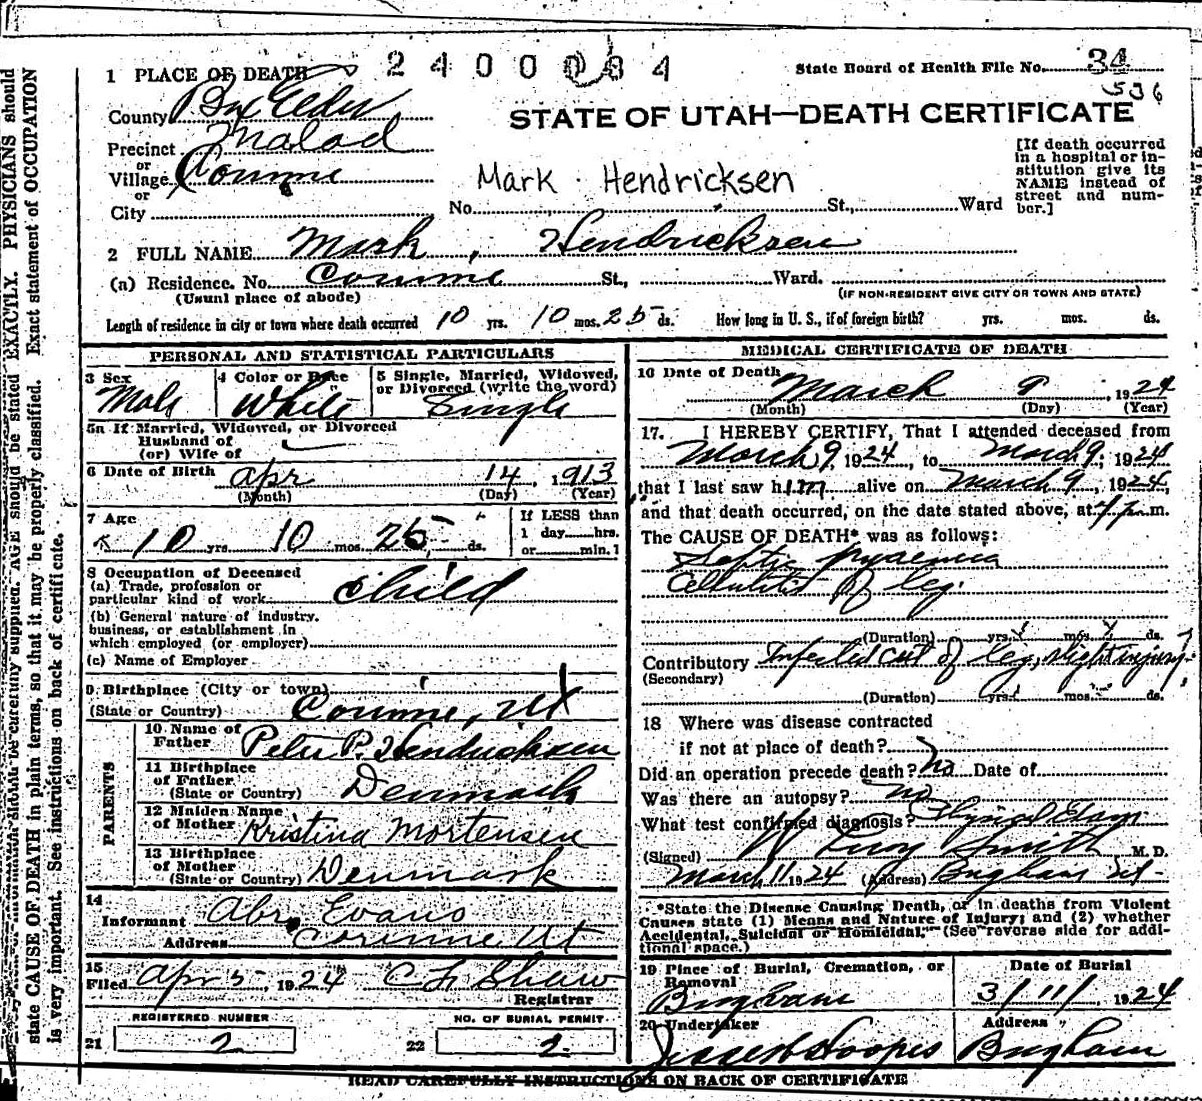 2400034
State Board of Health File No. 34
536
1 PLACE OF DEATH
County Box Elder
STATE OF UTAH—DEATH CERTIFICATE
Precinct Malad
or
Village Corinne
or
City
Mark Hendricksen
No. St., Ward
[If death occurred
in a hospital or in-
stitution give its
NAME instead of
street and num-
ber.]
2 FULL NAME Mark Hendricksen
(a) Residence. No. Corinne St., Ward.
(Usual place of abode)
(IF NON-RESIDENT GIVE CITY OR TOWN AND STATE)
Length of residence in city or town where death occurred 10 yrs. 10 mos. 25 ds. How long in U. S., if of foreign birth? yrs. mos. ds.
PERSONAL AND STATISTICAL PARTICULARS
3 Sex
Male
4 Color or Race
White
5 Single, Married, Widowed,
or Divorced (write the word)
Single
5a If Married, Widowed, or Divorced
Husband of
(or) Wife of
6 Date of Birth Apr 14, 1913
(Month) (Day) (Year)
7 Age
10 yrs. 10 mos. 25 ds.
If LESS than
1 day hrs.
or min.
8 Occupation of Deceased
(a) Trade, profession or
particular kind of work child
(b) General nature of industry,
business, or establishment in
which employed (or employer)
(c) Name of Employer
9 Birthplace (City or town)
(State or Country) Corinne, Ut
PARENTS
10 Name of
Father Peter P. Hendricksen
11 Birthplace
of Father
(State or Country) Denmark
12 Maiden Name
of Mother Kristina Mortensen
13 Birthplace
of Mother
(State or Country) Denmark
14
Informant Abr. Evans
Address Corinne Ut
15
Filed Apr 5, 1924 C F Shaw
Registrar
REGISTERED NUMBER
21 2
NO. OF BURIAL PERMIT
22 2
MEDICAL CERTIFICATE OF DEATH
16 Date of Death
March 9, 1924
(Month) (Day) (Year)
17. I HEREBY CERTIFY, That I attended deceased from
March 9, 1924, to March 9, 1924
that I last saw him alive on March 9, 1924,
and that death occurred, on the date stated above, at 7 p.m.
The CAUSE OF DEATH* was as follows:
Septic pyaemia
Cellulitis of leg.
(Duration) yrs. mos. ds.
Contributory Infected cut of leg, slight injury
(Secondary)
(Duration) yrs. mos. ds.
18 Where was disease contracted
if not at place of death?
Did an operation precede death? No Date of
Was there an autopsy? no
What test confirmed diagnosis? Physical Exam
(Signed) W Leroy Smith M. D.
March 11 1924 (Address) Brigham Ut
*State the Disease Causing Death, or in deaths from Violent
Causes state (1) Means and Nature of Injury; and (2) whether
Accidental, Suicidal or Homicidal. (See reverse side for addi-
tional space.)
19 Place of Burial, Cremation, or
Removal
Brigham
Date of Burial
3/11/, 1924
20 Undertaker
Jesse W Hoopes
Address
Brigham
READ CAREFULLY INSTRUCTIONS ON BACK OF CERTIFICATE
AGE should be stated EXACTLY. PHYSICIANS should
state CAUSE OF DEATH in plain terms, so that it may be properly classified. Exact statement of OCCUPATION
is very important. See instructions on back of certificate.